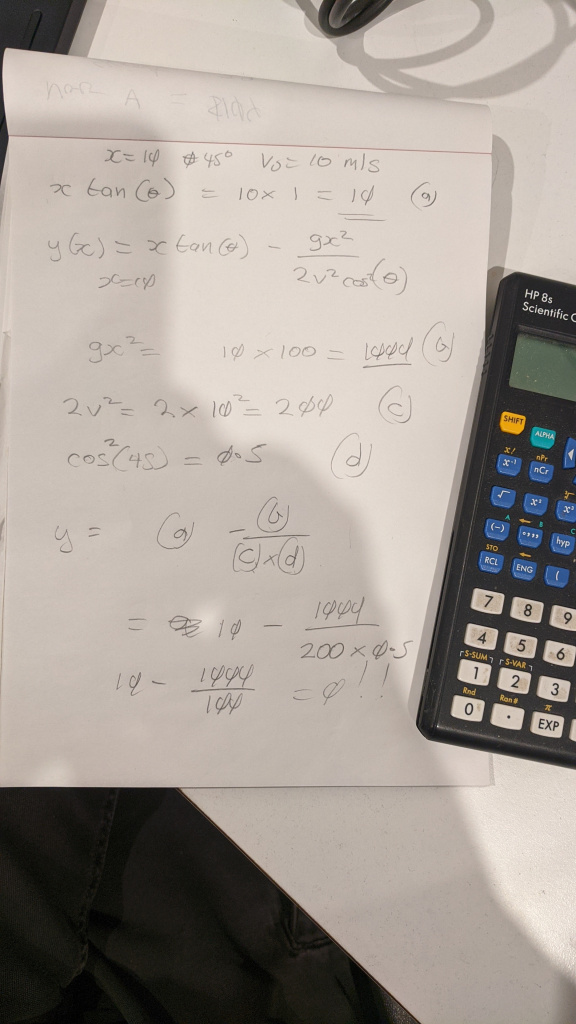 x=10 θ 45° V₀= 10 m/s
x tan(θ) = 10 x 1 = 10 (a)
y(x) = x tan(θ) - gx² / 2v² cos²(θ)
x=10
gx² = 10 x 100 = 1000 (b)
2v² = 2 x 10² = 200 (c)
cos²(45) = 0.5 (d)
y = (a) - (b) / (c) x (d)
= 10 - 1000 / 200 x 0.5
10 - 1000 / 100 = 0!!
HP 8s
Scientific
SHIFT
ALPHA
x! nPr
x⁻¹ nCr
√ x²
A B
(-) °,,, hyp
STO
RCL ENG (
7 8 9
4 5 6
S-SUM S-VAR
1 2 3
Rnd Ran# π
0 . EXP